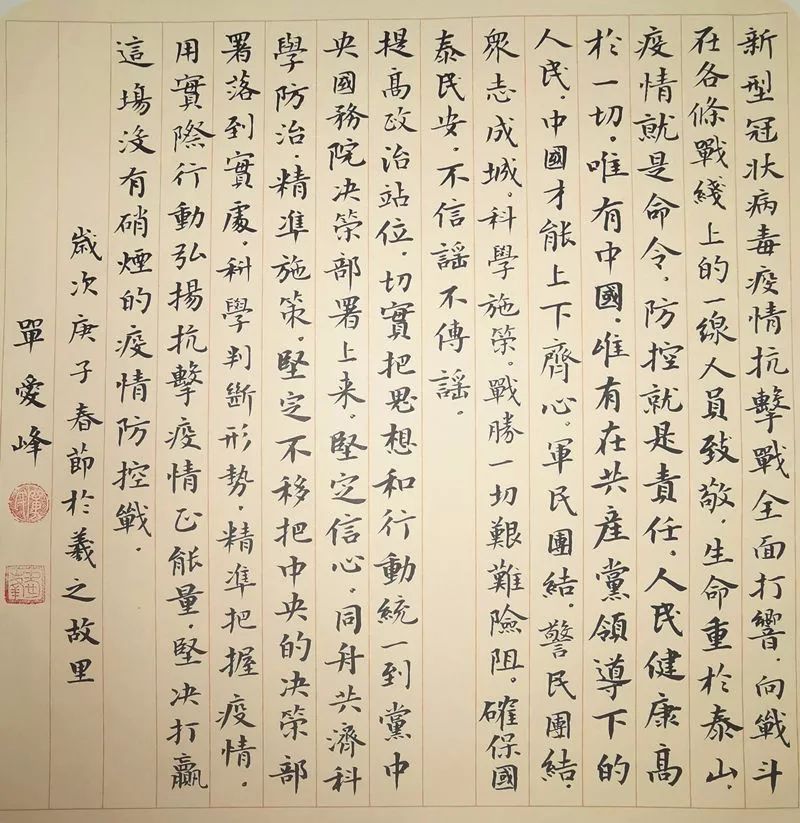 新型冠狀病毒疫情抗擊戰全面打響.向戰斗
在各條戰綫上的一線人員致敬.生命重於泰山.
疫情就是命令.防控就是責任.人民健康高
於一切.唯有中國.唯有在共産黨領導下的
人民.中國才能上下齊心.軍民團結.警民團結.
衆志成城.科學施策.戰勝一切艱難險阻.確保國
泰民安.不信謡不傳謡.
提高政治站位.切實把思想和行動統一到黨中
央國務院决策部署上来.堅定信心.同舟共濟科
學防治.精準施策.堅定不移把中央的决策部
署落到實處.科學判斷形勢.精準把握疫情.
用實際行動弘揚抗擊疫情正能量.堅决打贏
這場没有硝煙的疫情防控戰.
歲次庚子春節於羲之故里
單愛峰